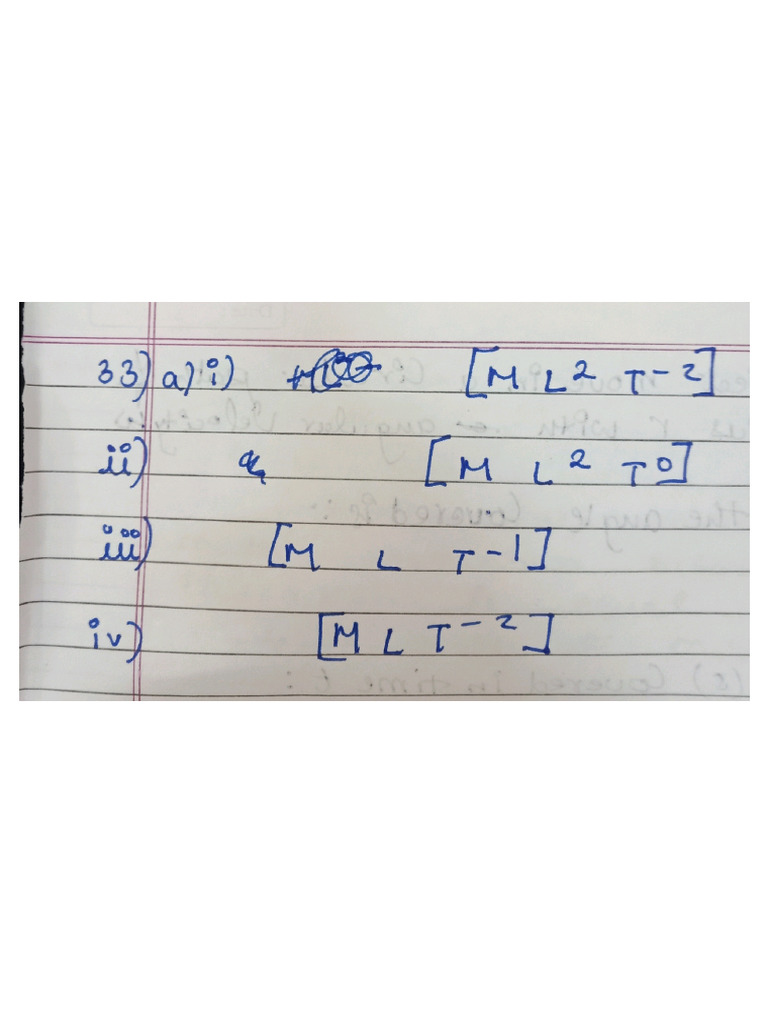 33) a) i) [M L² T⁻²]
ii) [M L² T⁰]
iii) [M L T⁻¹]
iv) [M L T⁻²]